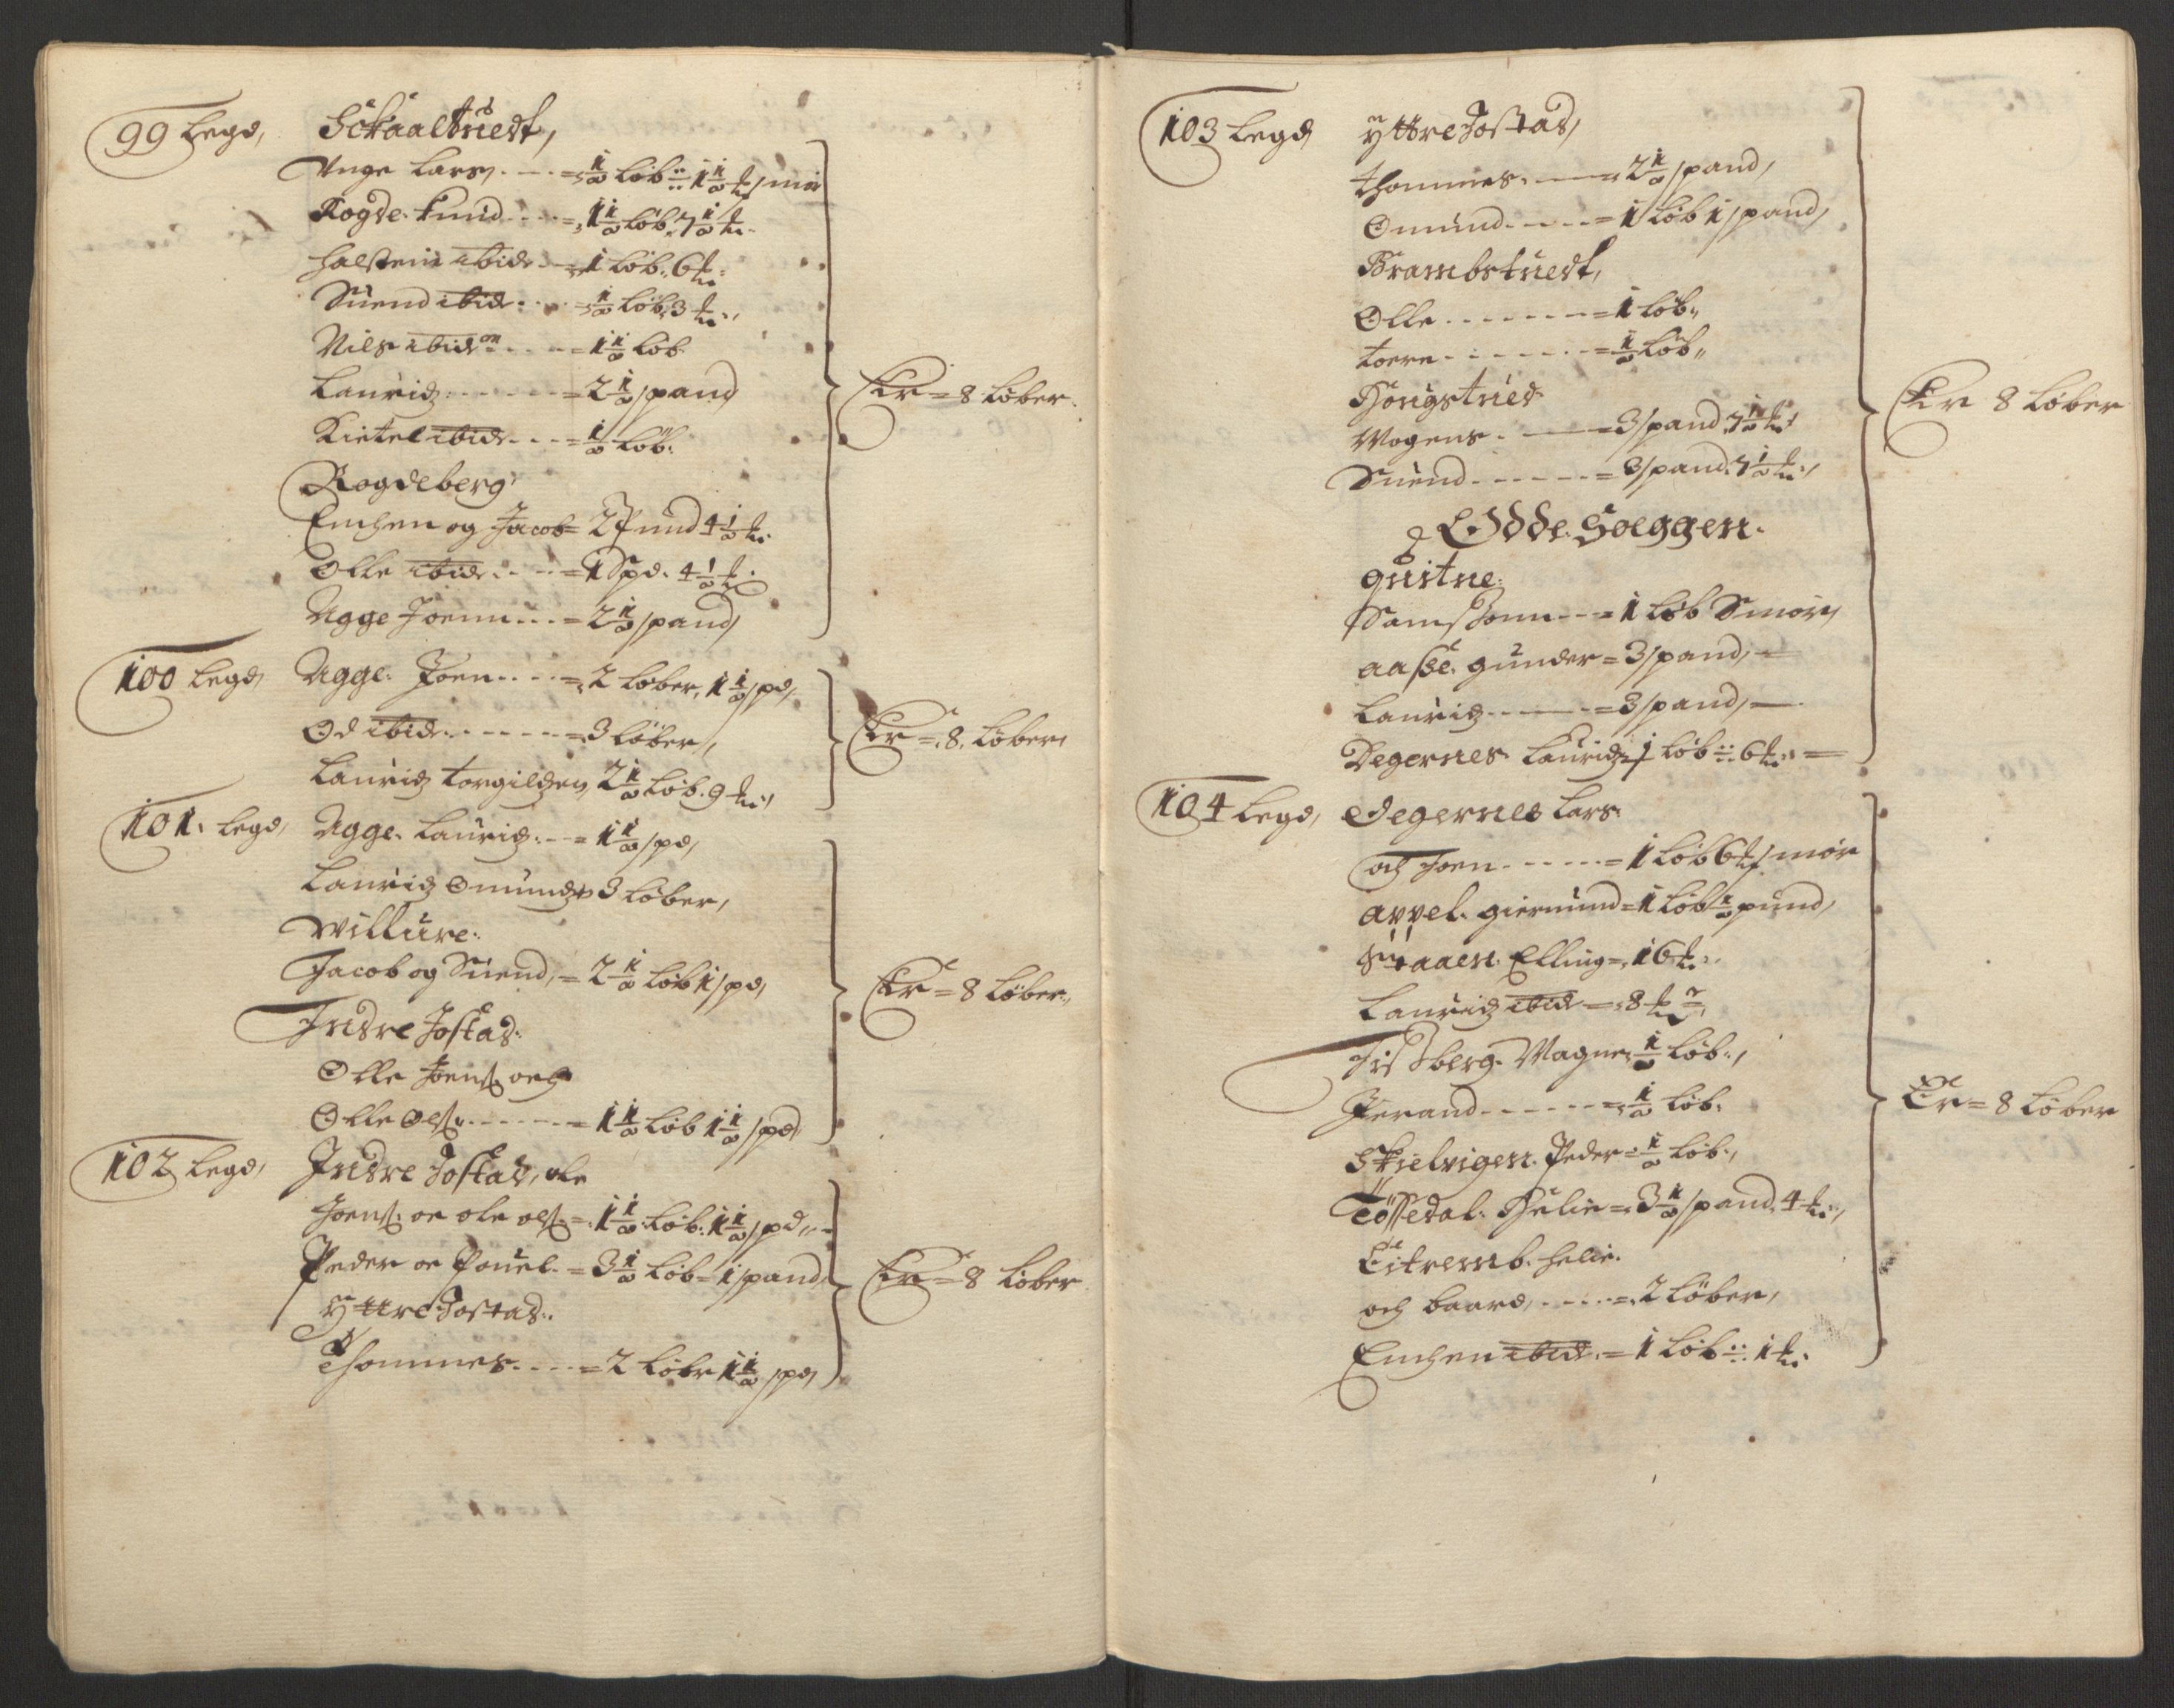 99 Legd, Schaaltuedt,
Unge Lars, - - - = ½ Løb ÷ 1½ ℔ smør
Rogde. Knud - - - = 1½ Løb, 7½ ℔.
Halsteni ibid - = 1 Løb. 6 ℔.
Suend ibid. - - = ½ Løb 3 ℔.,
Nils ibidem - - - = 1½ Løb.
Lauridz - - - - = 2½ spand
Kietel ibid - - - = ½ Løb.
Rogdeberg
Euchen og Jacob = 2 Pund 4½ ℔.
Olle ibid - - - = 1 Spd. 4½ ℔.
Agge Joenn - - - = 2½ spand,
Er = 8 Løber.
100 Legd, Agge. Joen - - - = 2 Løber, 1½ spd,
Od ibid - - - - = 3 Løber,
Lauridz Torgildzen, 2½ Løb. 9 ℔.,
Er = 8. Løber,
101. Legd, Agge. Lauridz. - - = 1½ spd,
Lauridz Omundz 3 Løber,
Willure.
Jacob og Suend, = 2½ Løb 1 spd,
Indre Jostad.
Olle Joens: och
Olle Ols: - - - - = 1½ Løb 1½ spd,
Er = 8 Løber.,
102 Legd, Indre Jostad, ole
Joens: oc ole ols: = 1½ Løb. 1½ spd,,
Peder oc Pouel. = 3½ Løb = 1 spand,
Yttre Jostad.
Thommes. - - - = 2 Løbr 1½ spd,
Er = 8 Løber
103 Legd Yttre Jostad,
Thommes. - - - = 2½ spand,
Omund - - - - = 1 Løb 1 spand,
Brambstuedt,
Olle - - - - - = 1 Løb,,
Toere - - - - - = ½ Løb,,
Hougstued
Mogens. - - - = 3 spand, 7½ ℔.
Suend - - - - = 3 spand. 7½ ℔.,
Odde. Soeggen.
Quitne.
Sams Jonn - - - = 1 Løb Smør,
Aasse. Gunder = 3 spand, -
Lauridz - - - = 3 spand, -
Degernes. Lauridz = 1 Løb ÷ 6 ℔. =
Er 8 Løber
104 Legd, Degernes Lars.
och Joen - - - - = 1 Løb 6 ℔ smør
Appel. Giermund = 1 Løb ½ pund,
Staaen. Elling = 16 ℔.
Lauridz ibid = 8 ℔
berg. Magne, ½ Løb.,
Jerand - - - - = ½ Løb.
Skielvigen. Peder = ½ Løb.,
Tössedal. Helie = 3½ spand. 4 ℔.,
Eitremb. Helie.
och Baard, - - - = 2 Løber,
Euchen ibid. = 1 Løb ÷ 1 ℔.
Er = 8 Løber